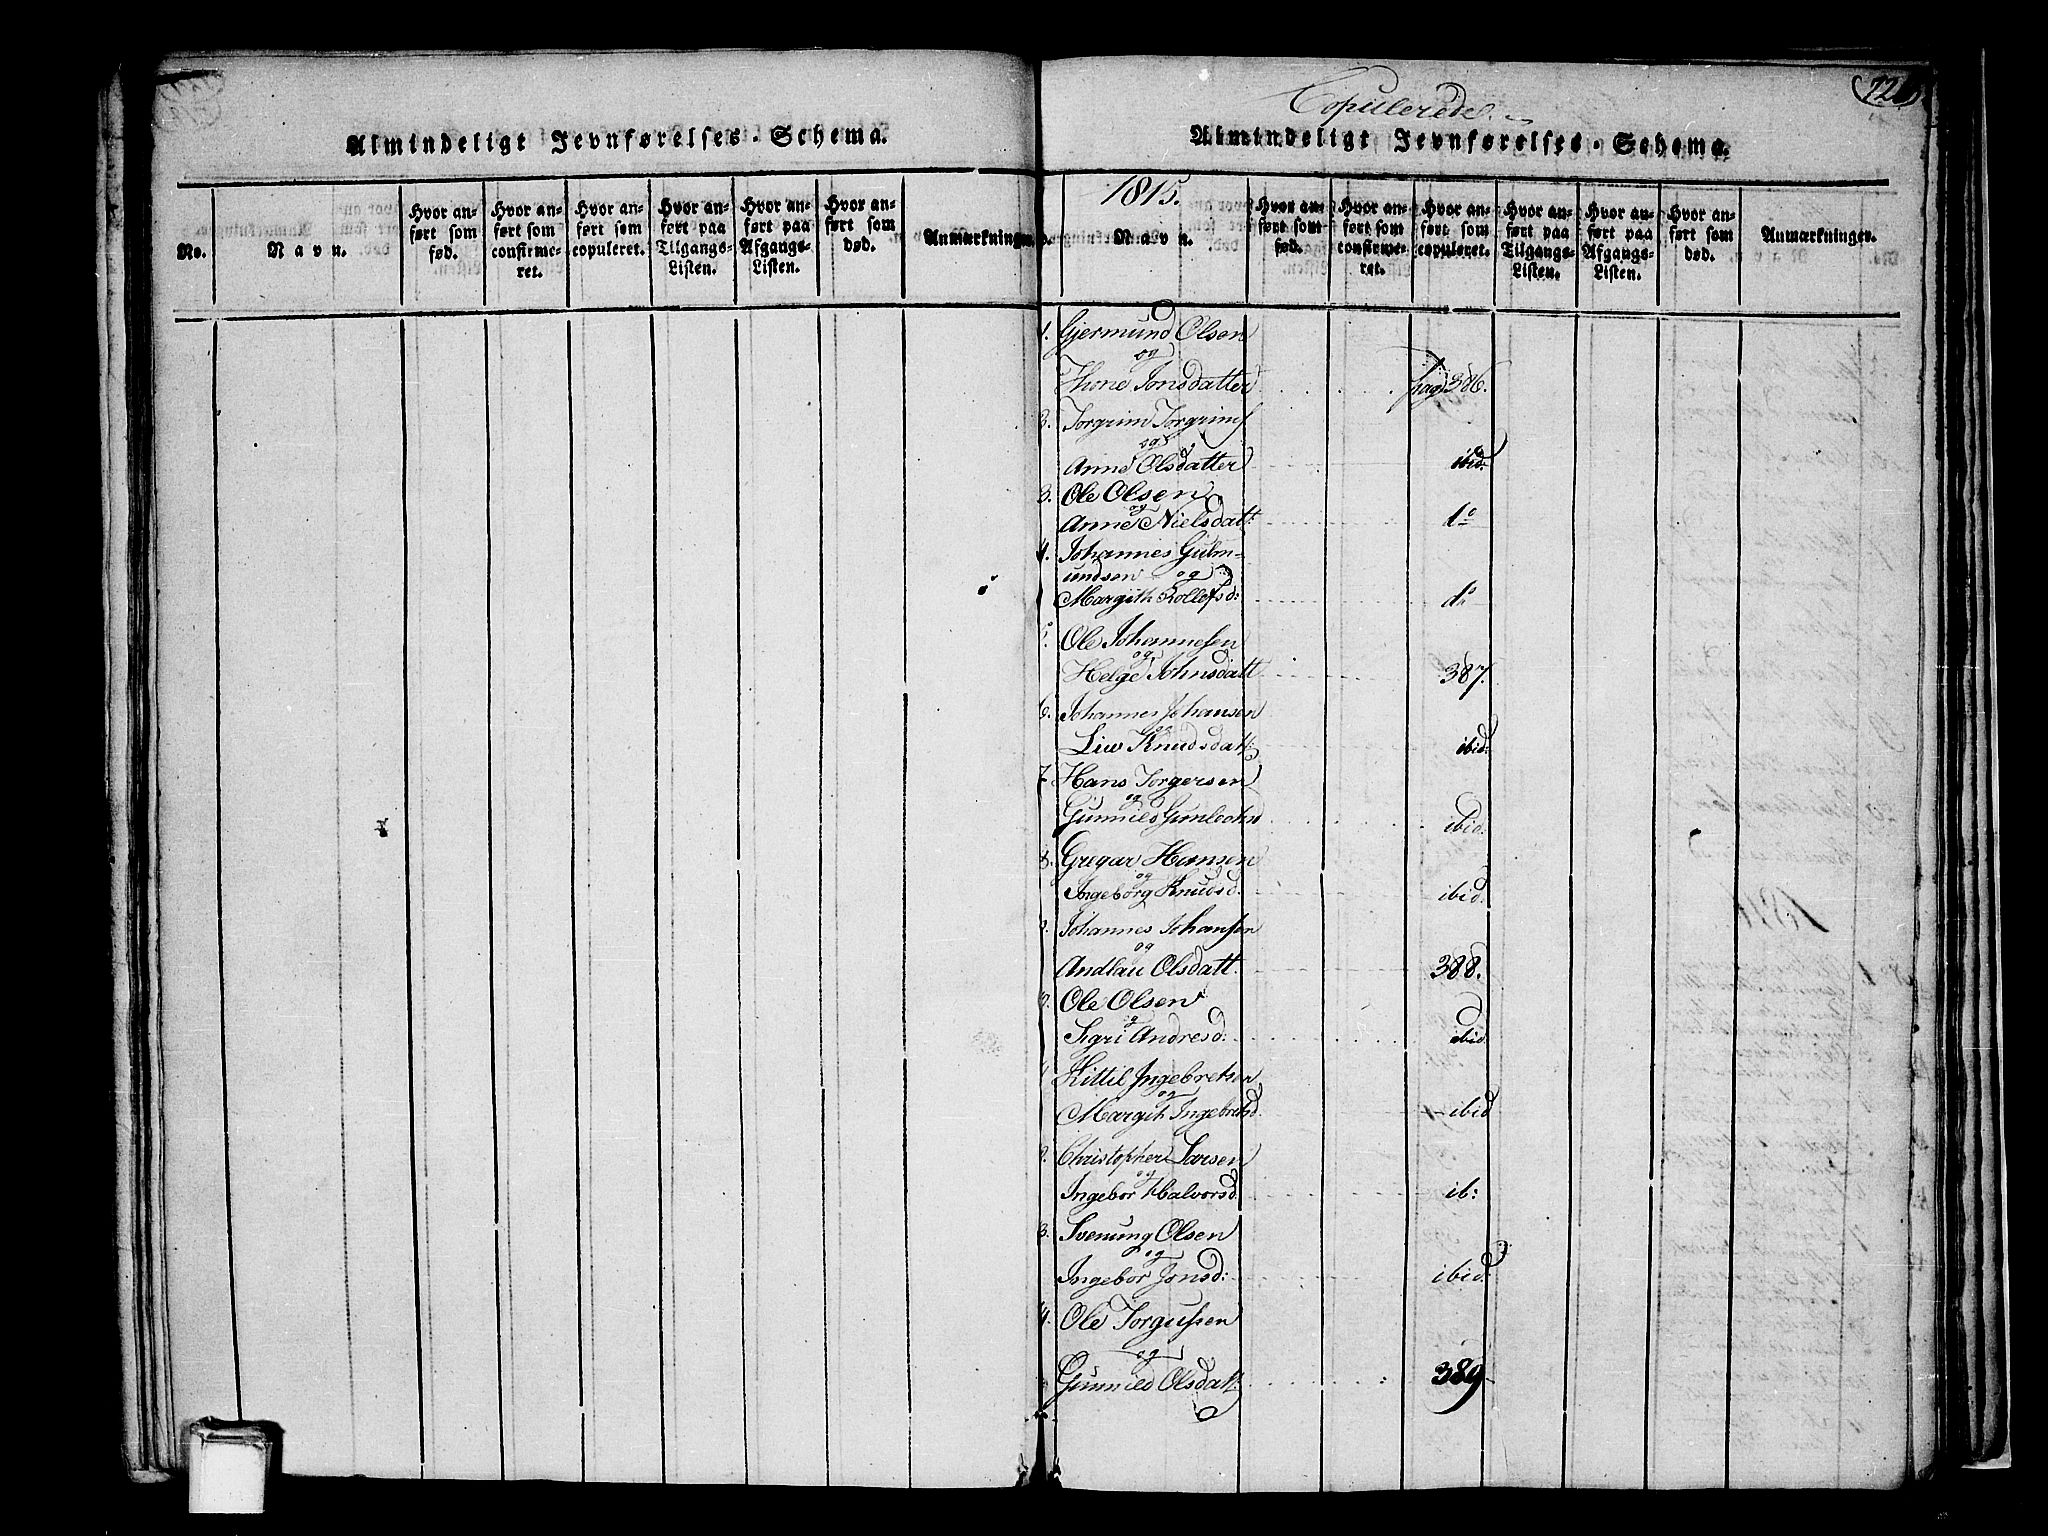 Almindeligt Jevnførelses-Schema.
No.
Navn.
Hvor an-
ført som
fød.
Hvor an-
ført som
confirme-
ret.
Hvor an-
ført som
copuleret.
Hvor an-
ført paa
Tilgangs-
Listen.
Hvor an-
ført paa
Afgangs-
Listen.
Hvor an-
ført som
død.
Anmærkninger.
Copulerede.
72
Almindeligt Jevnførelses-Schema.
1815.
Navn.
Hvor an-
ført som
fød.
Hvor an-
ført som
confirme-
ret.
Hvor an-
ført som
copuleret.
Hvor an-
ført paa
Tilgangs-
Listen.
Hvor an-
ført paa
Afgangs-
Listen.
Hvor an-
ført som
død.
Anmærkninger.
1. Gjermund Olsen
og
Thone Jonsdatter pag 386.
2. Torgrim Torgrims
og
Anne Olsdatter ibid:
3. Ole Olsen
og
Anne Nielsdatt: do
4. Johannes Gulm-
undsen og
Margith Rollefsd: do
5. Ole Johannesen
og
Helge Johnsdatt 387.
6. Johannes Johansen
og
Liw Knudsdatt: ibid:
7. Hans Torgersen
og
Gunnild Gunlechsd ibid.
8. Gregar Hansen
og
Ingeborg Knudsd. ibid.
9. Johannes Johansen
og
Andlau Olsdatt. 388.
0. Ole Olsen
og
Sigri Andresd: ibid
Kittil Ingebretsen
og
Margith Ingebretsd. ibid
2. Christopher Larsen
og
Ingebor Halvorsd. ib:
3. Svenung Olsen
og
Ingebor Jonsd: ibid:
4. Ole Torgussen
og
Gunnild Olsdatt. 389